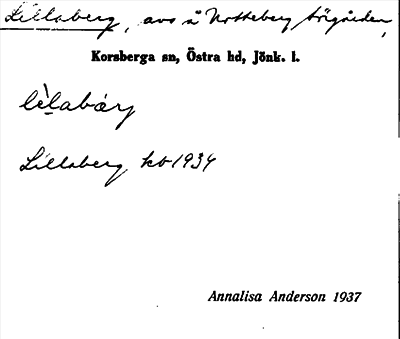 Lillaberg, avs å Notteberg Sörgården,
Korsberga sn, Östra hd, Jönk. l.
lìlabæ̀rj
Lillaberg kb 1934
Annalisa Anderson 1937